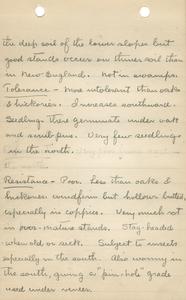 the deep soil of the lower slopes but
good stands occur on thinner soil than
in New England. Not in swamps.
Tolerance - More intolerant than oaks
& hickories. Increases southward.
Seedling. Trees germinate under oak
and scrub pine. Very few seedlings
in the north.
Resistance - Poor. Less than oaks &
hickories. windfirm but hollow butted,
especially in coppice. Very much rot
in over-mature stands. Stag-headed
when old or sick. Subject to insects
especially in the south. Also wormy in
the south, giving a "pin-hole" grade
used under veneer.